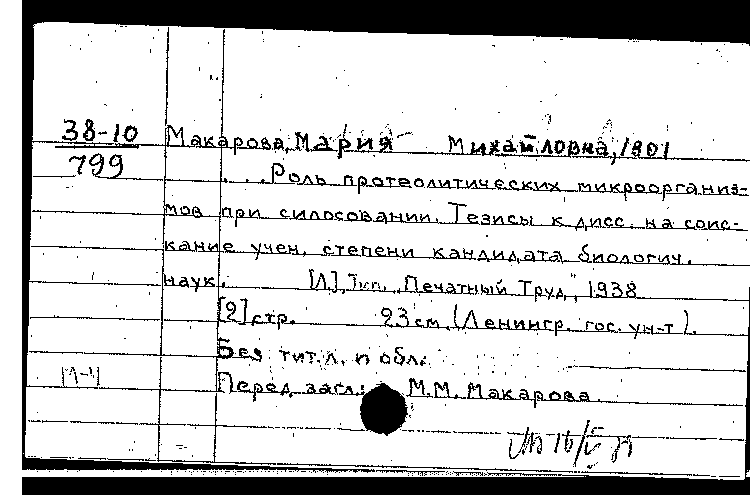 38-10 Макарова, Мария Михайловна, 1901
799
. . . Роль протеолитических микроорганиз-
мов при силосовании. Тезисы к дисс. на соис-
кание учен. степени кандидата биологич.
наук. [Л], Тип. "Печатный Труд", 1938
[2] стр. 23 см. (Ленингр. гос. ун-т).
Без тит. л. и обл.
Перед загл.: М.М. Макарова